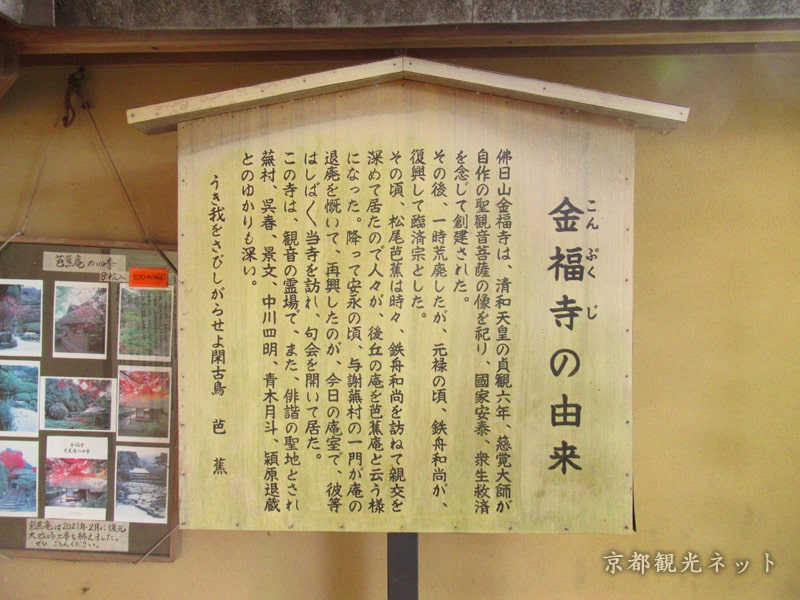 金福寺の由来
こんぷくじ
佛日山金福寺は、清和天皇の貞観六年、慈覚大師が
自作の聖観音菩薩の像を祀り、國家安泰、衆生救済
を念じて創建された。
その後、一時荒廃したが、元禄の頃、鉄舟和尚が、
復興して臨済宗とした。
その頃、松尾芭蕉は時々、鉄舟和尚を訪ねて親交を
深めて居たので人々が、後丘の庵を芭蕉庵と云う様
になった。降って安永の頃、与謝蕪村の一門が庵の
退廃を慨いて、再興したのが、今日の庵室で、彼等
はしばしば、当寺を訪れ、句会を開いて居た。
この寺は、観音の霊場で、また、俳諧の聖地とされ
蕪村、呉春、景文、中川四明、青木月斗、潁原退蔵
とのゆかりも深い。
うき我をさびしがらせよ閑古鳥 芭蕉
芭蕉庵の四季
8枚入
芭蕉庵は2021年2月に復元
大改修工事を終えました。
ぜひ ごらんください。
京都観光ネット